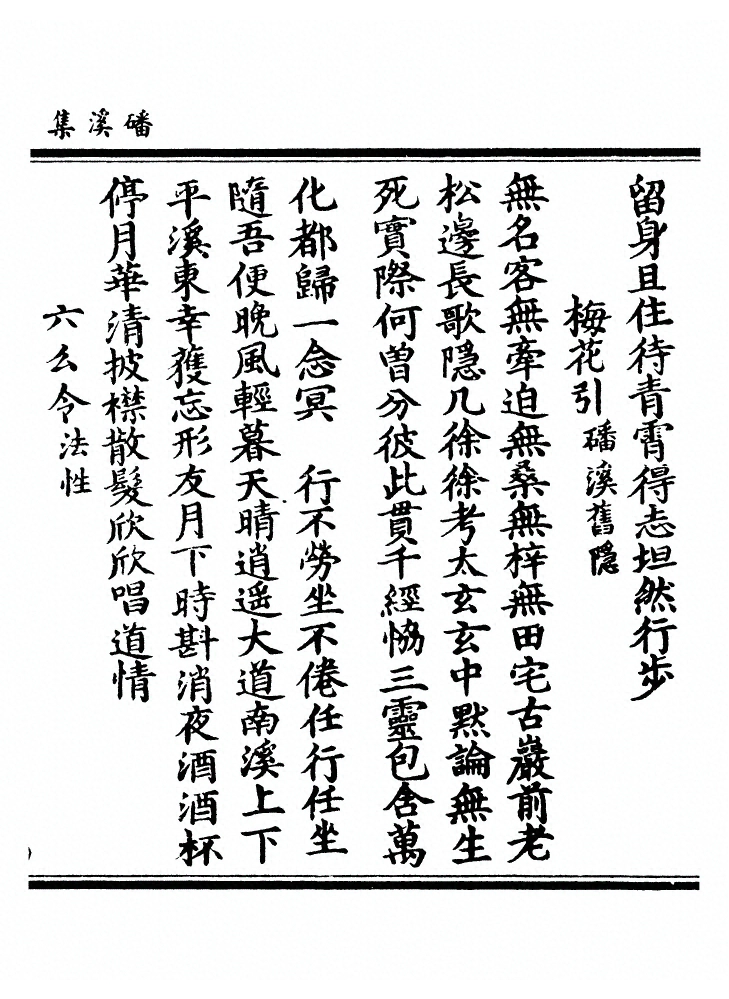 磻溪集
留身且住待青霄得志坦然行步
梅花引磻溪舊隱
無名客無牽迫無桑無梓無田宅古巖前老
松邊長歌隱几徐徐考太玄玄中默論無生
死實際何曾分彼此貫千經恊三靈包含萬
化都歸一念冥　行不勞坐不倦任行任坐
隨吾便晚風輕暮天晴逍遥大道南溪上下
平溪東幸獲忘形友月下時斟消夜酒酒杯
停月華清披襟散髮欣欣唱道情
六么令法性